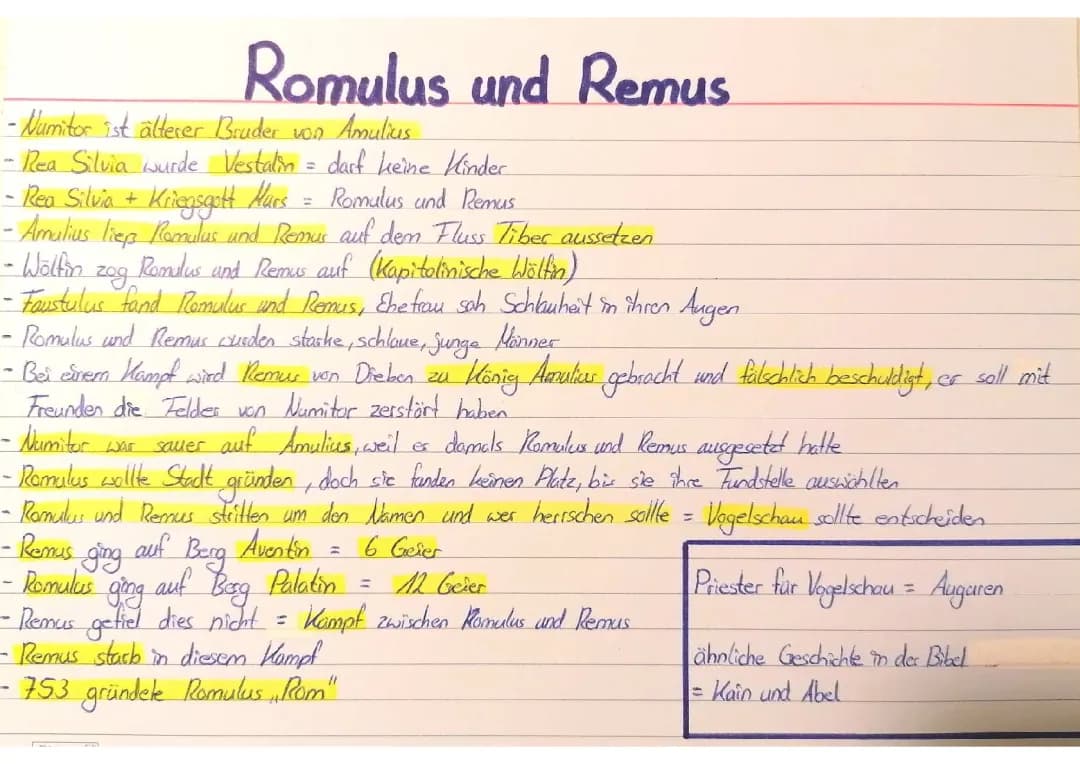 Romulus und Remus
- Numitor ist älterer Bruder von Amulius
- Rea Silvia wurde Vestalin = darf keine Kinder
- Rea Silvia + Kriegsgott Mars = Romulus und Remus
- Amulius ließ Romulus und Remus auf dem Fluss Tiber aussetzen
- Wölfin zog Romulus und Remus auf (Kapitolinische Wölfin)
- Faustulus fand Romulus und Remus, Ehefrau sah Schlauheit in ihren Augen
- Romulus und Remus wurden starke, schlaue, junge Männer
- Bei einem Kampf wird Remus von Dieben zu König Amulius gebracht und fälschlich beschuldigt, er soll mit
Freunden die Felder von Numitor zerstört haben
- Numitor war sauer auf Amulius, weil es damals Romulus und Remus ausgesetzt hatte
- Romulus wollte Stadt gründen, doch sie fanden keinen Platz, bis sie ihre Fundstelle auswählten
- Romulus und Remus stritten um den Namen und wer herrschen sollte = Vogelschau sollte entscheiden
- Remus ging auf Berg Aventin = 6 Geier
- Romulus ging auf Berg Palatin = 12 Geier
- Remus gefiel dies nicht = Kampf zwischen Romulus und Remus
- Remus starb in diesem Kampf
- 753 gründete Romulus „Rom"
Priester für Vogelschau = Auguren
ähnliche Geschichte in der Bibel
= Kain und Abel